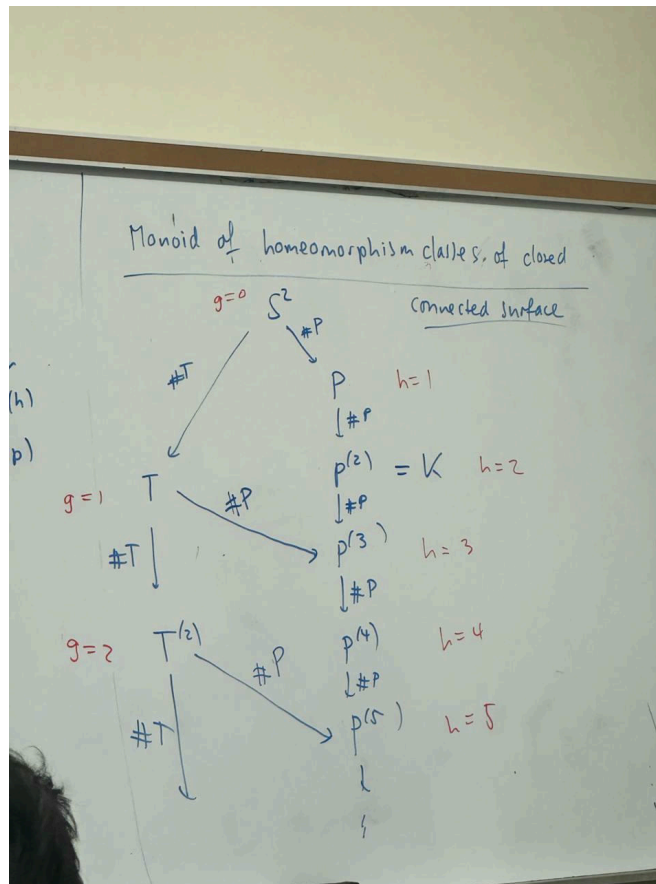 Monoid of homeomorphism classes of closed
connected surface
g=0 S²
#P
#T
P h=1
(h)
#P
p)
P⁽²⁾ = K h=2
g=1 T
#P
#P
P⁽³⁾ h=3
#T
#P
g=2 T⁽²⁾
P⁽⁴⁾ h=4
#P
#P
P⁽⁵⁾ h=5
#T